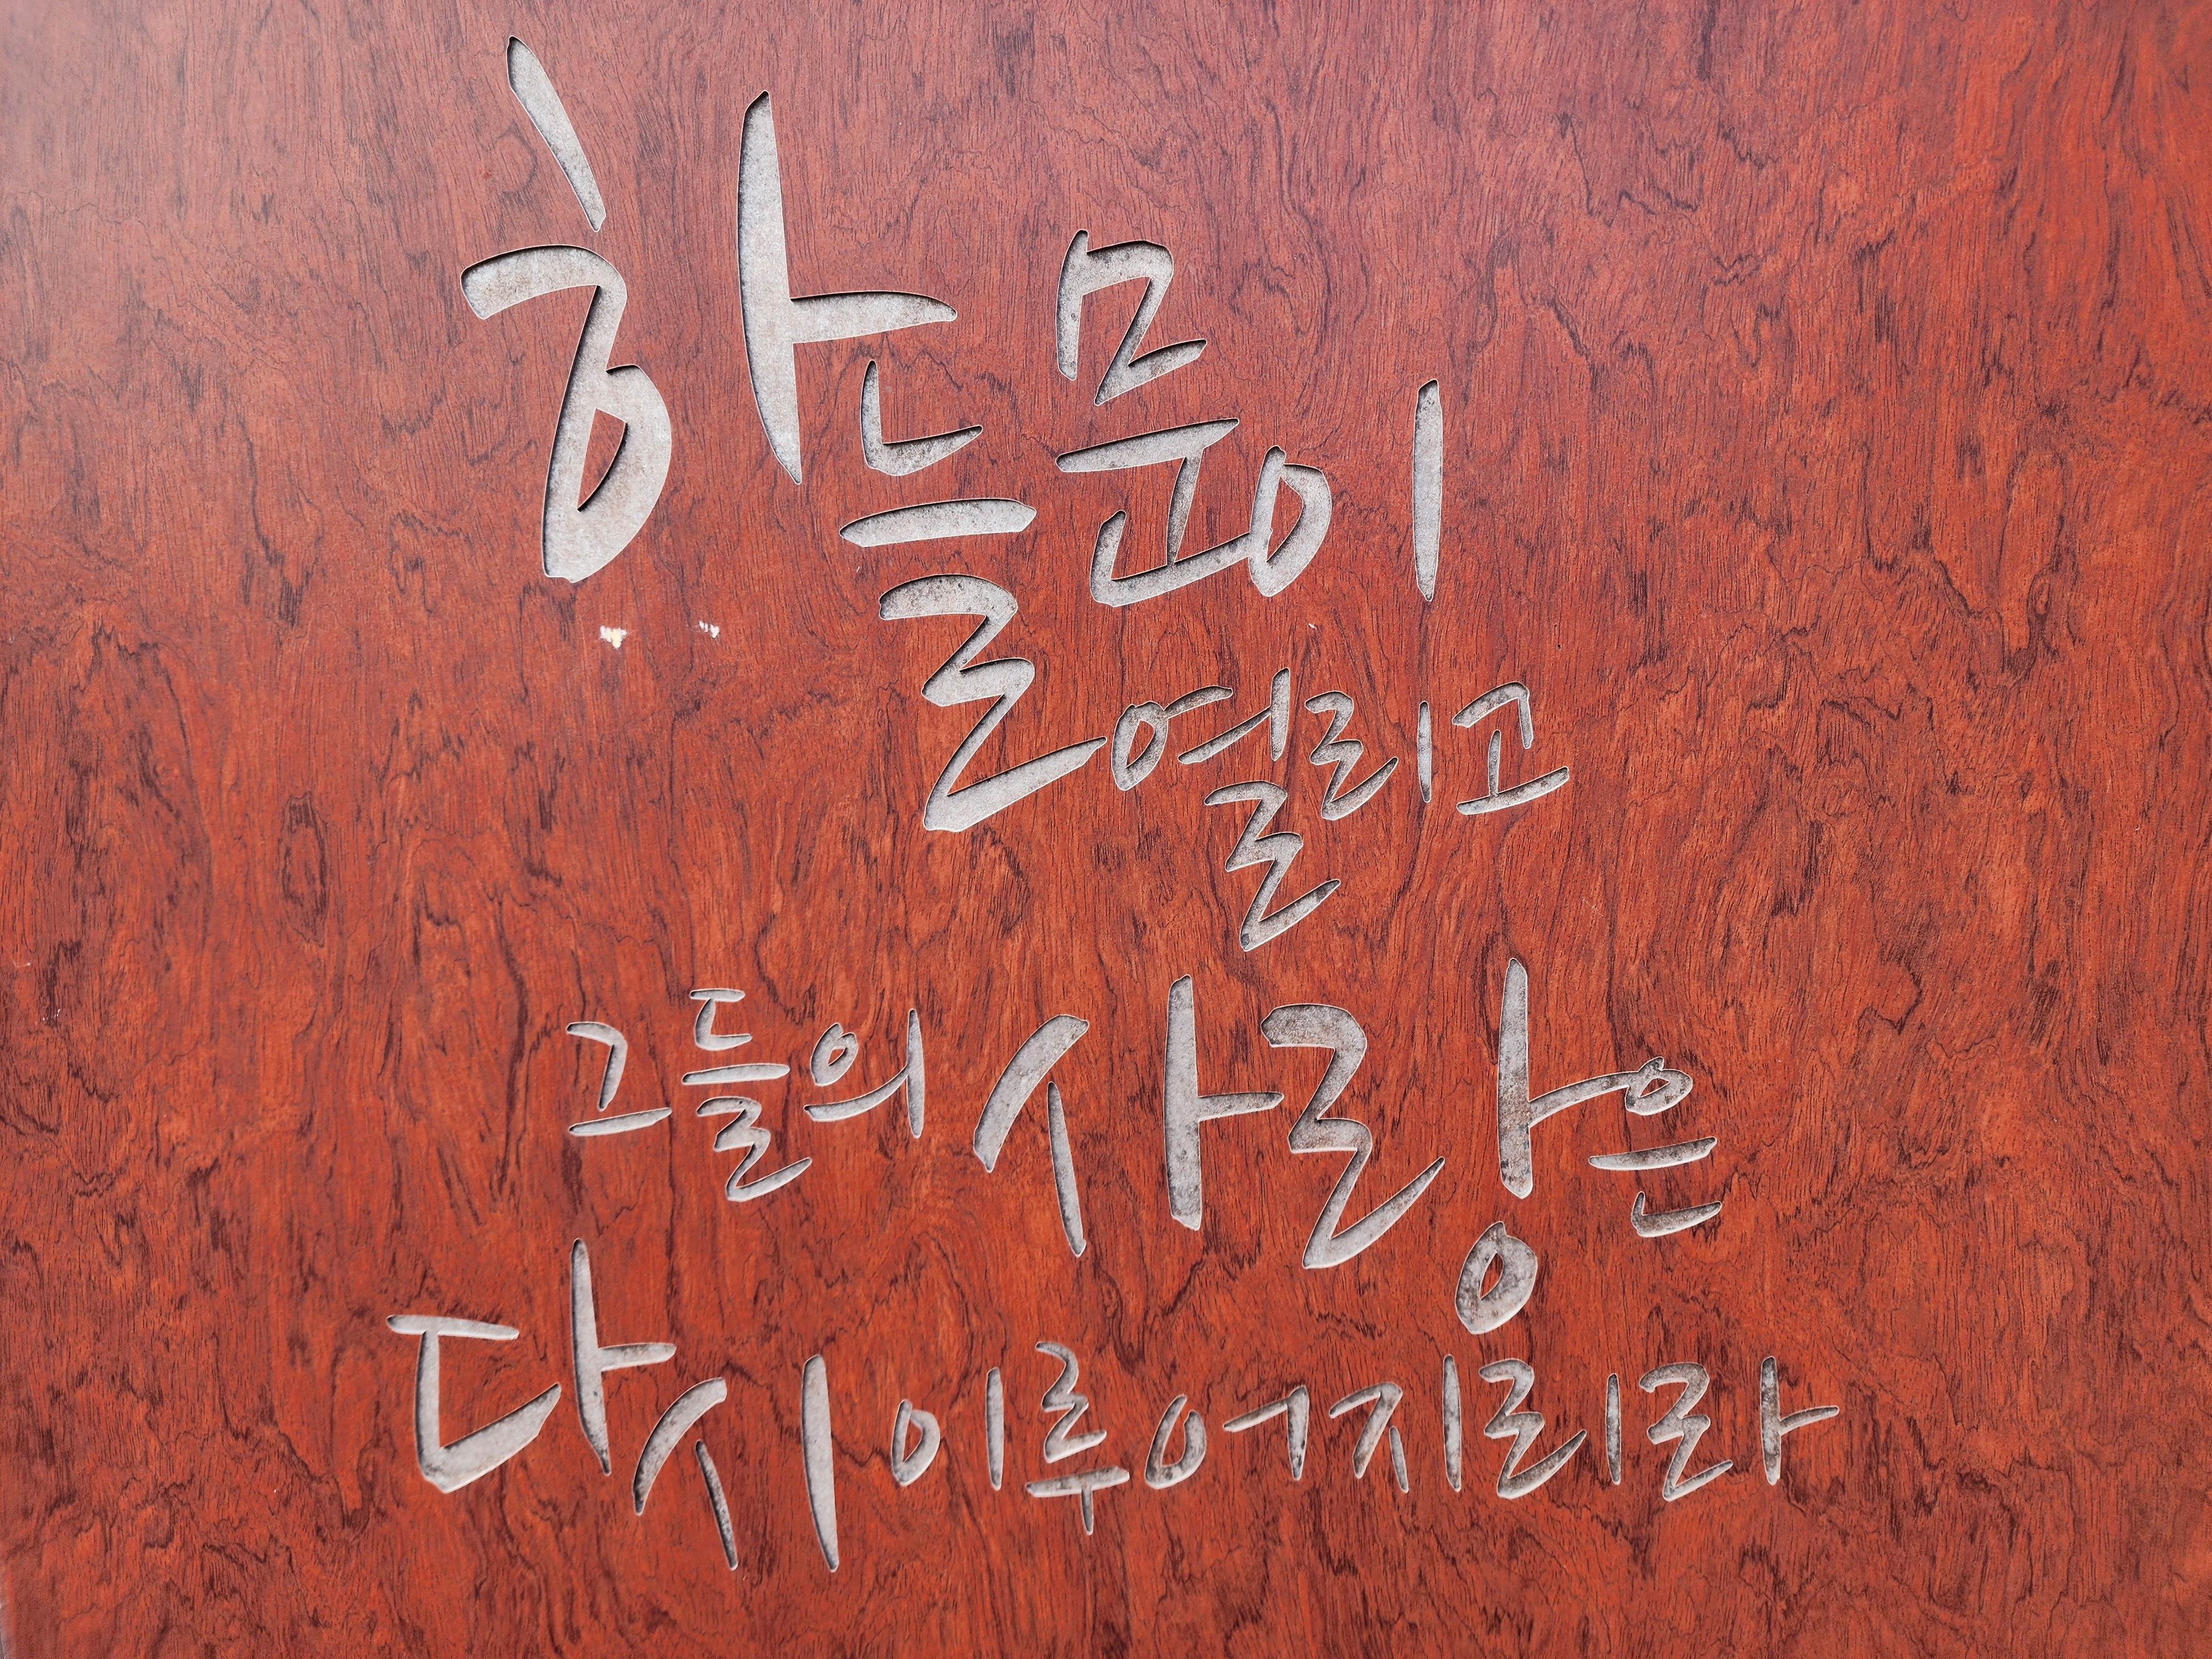 하늘문이
열리고
그들의 사랑은
다시 이루어지리라